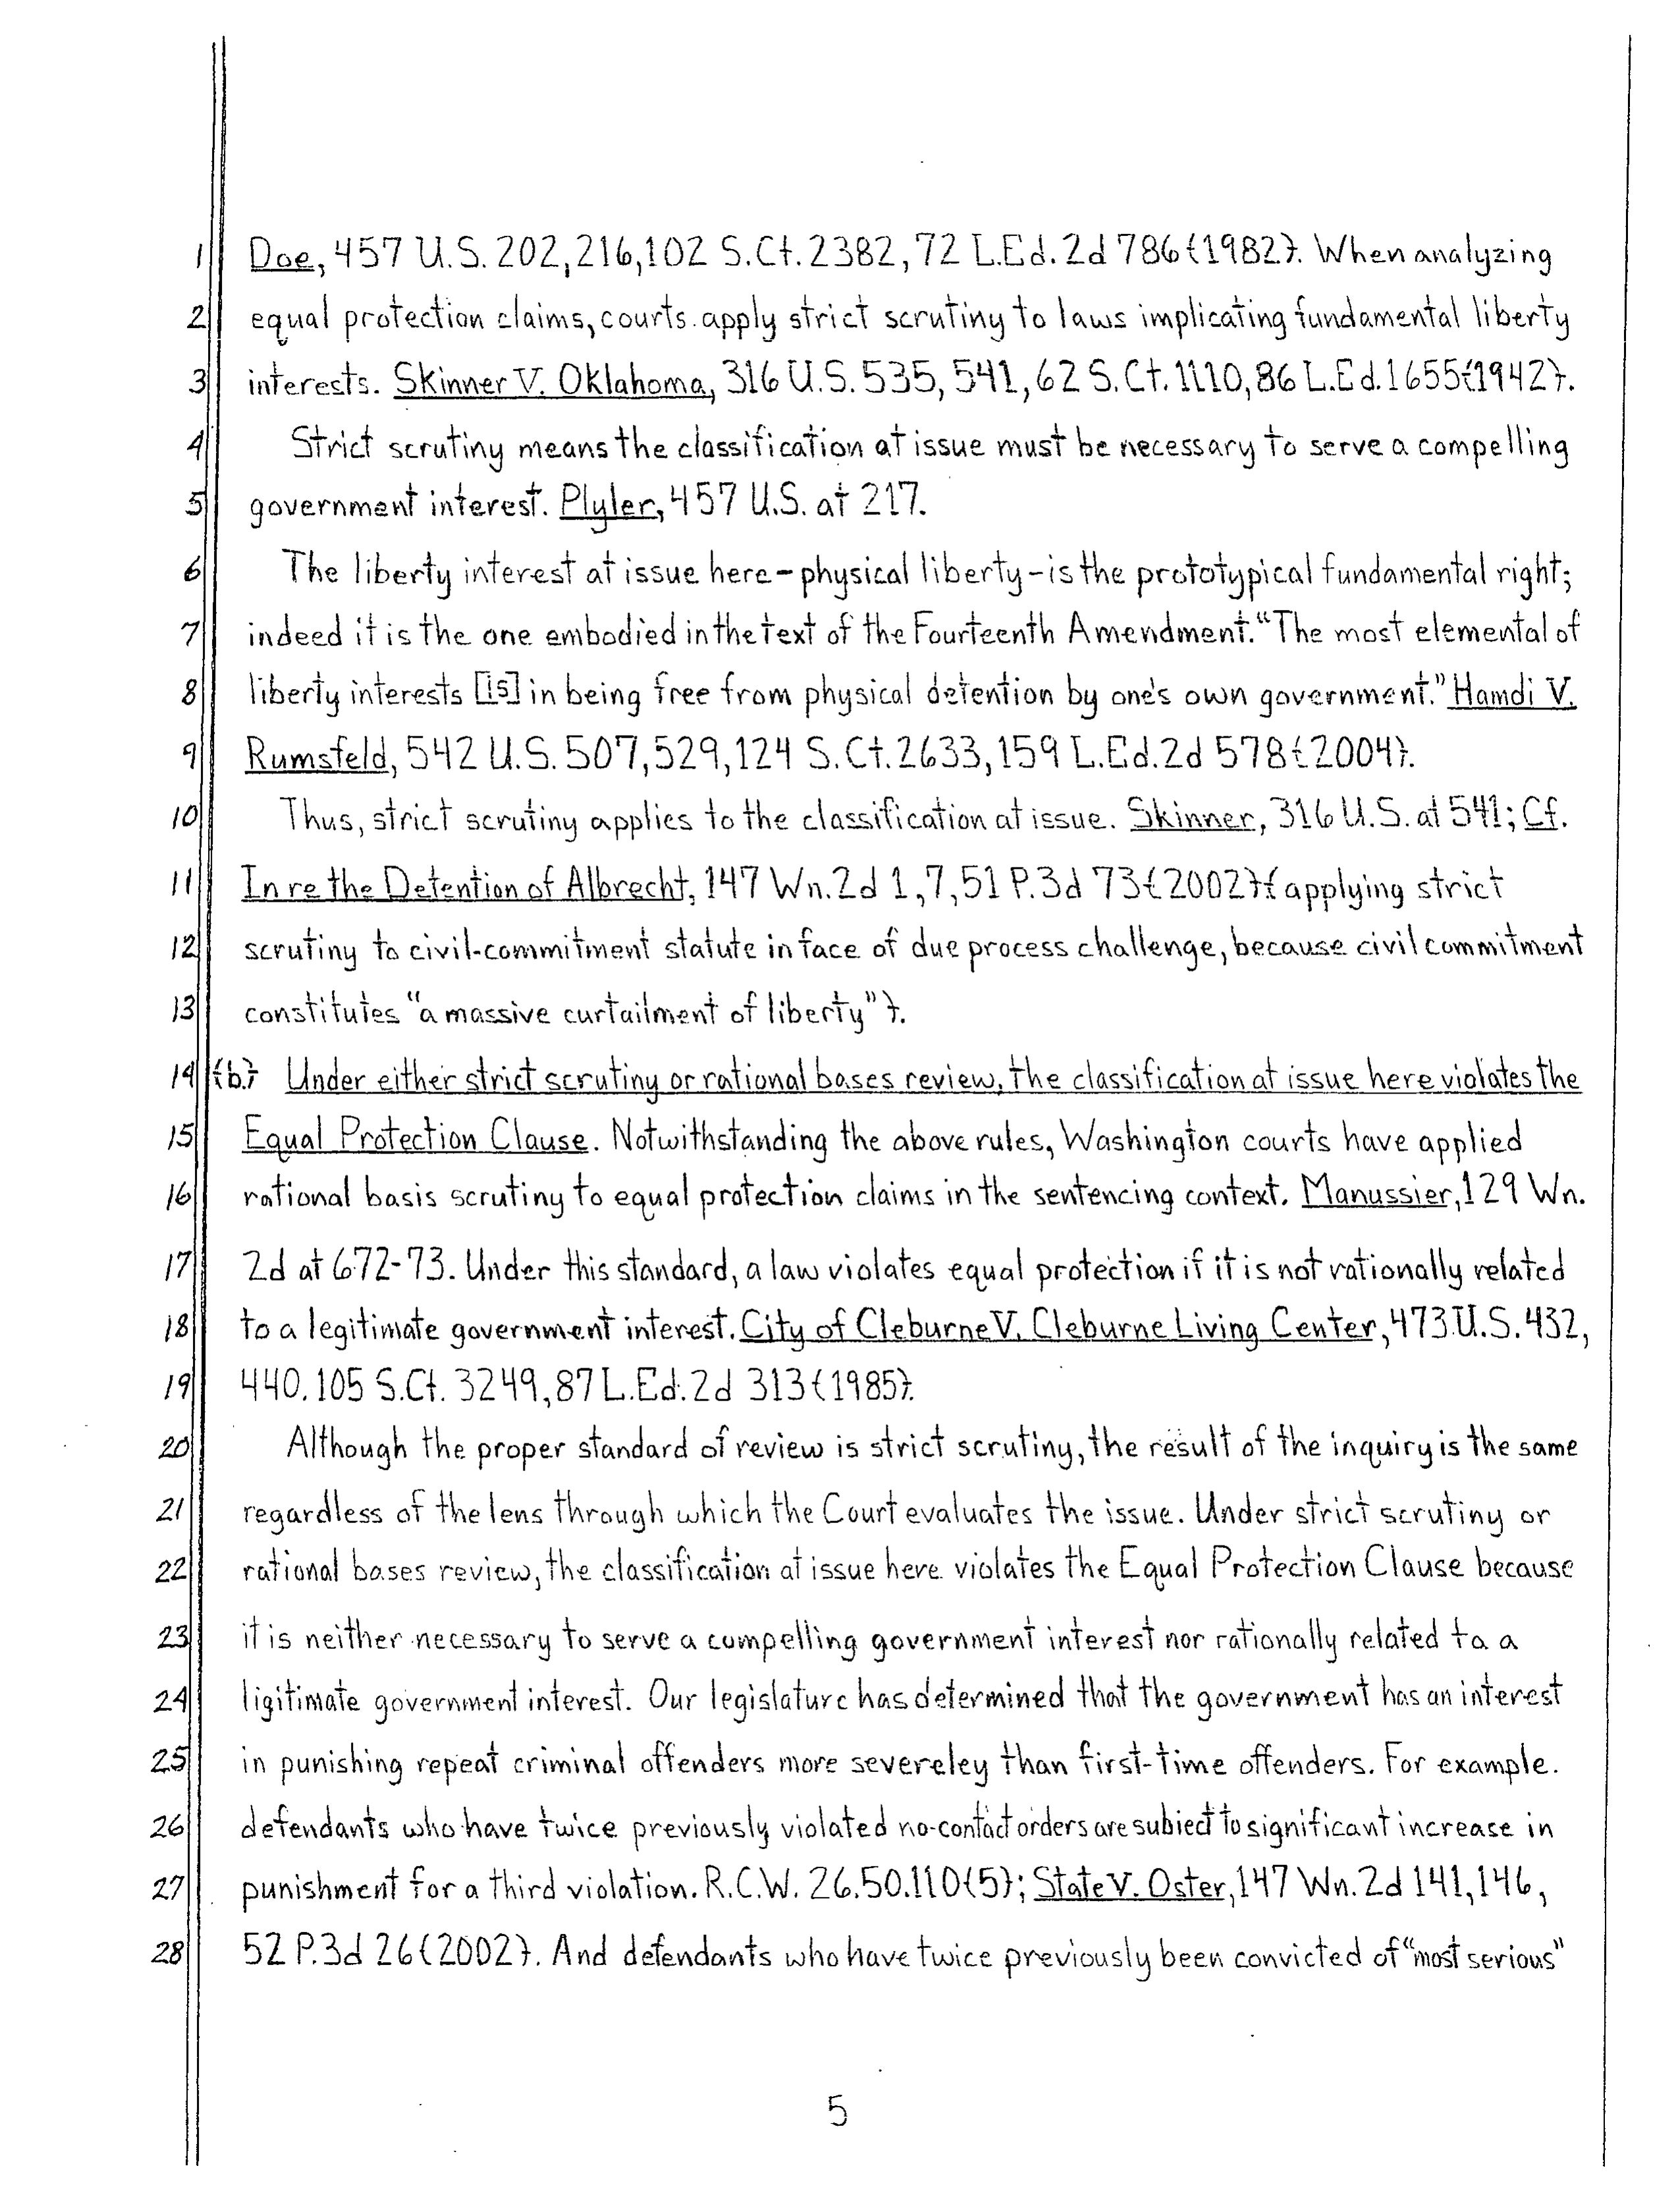 1 Doe, 457 U.S. 202, 216, 102 S.Ct. 2382, 72 L.Ed. 2d 786 {1982}. When analyzing
2 equal protection claims, courts apply strict scrutiny to laws implicating fundamental liberty
3 interests. Skinner V. Oklahoma, 316 U.S. 535, 541, 62 S.Ct. 1110, 86 L.Ed. 1655 {1942}.
4 Strict scrutiny means the classification at issue must be necessary to serve a compelling
5 government interest. Plyler, 457 U.S. at 217.
6 The liberty interest at issue here - physical liberty - is the prototypical fundamental right;
7 indeed it is the one embodied in the text of the Fourteenth Amendment. "The most elemental of
8 liberty interests [is] in being free from physical detention by one's own government." Hamdi V.
9 Rumsfeld, 542 U.S. 507, 529, 124 S.Ct. 2633, 159 L.Ed.2d 578 {2004}.
10 Thus, strict scrutiny applies to the classification at issue. Skinner, 316 U.S. at 541; Cf.
11 In re the Detention of Albrecht, 147 Wn.2d 1, 7, 51 P.3d 73 {2002} {applying strict
12 scrutiny to civil-commitment statute in face of due process challenge, because civil commitment
13 constitutes "a massive curtailment of liberty"}.
14 {b.} Under either strict scrutiny or rational bases review, the classification at issue here violates the
15 Equal Protection Clause. Notwithstanding the above rules, Washington courts have applied
16 rational basis scrutiny to equal protection claims in the sentencing context. Manussier, 129 Wn.
17 2d at 672-73. Under this standard, a law violates equal protection if it is not rationally related
18 to a legitimate government interest. City of Cleburne V. Cleburne Living Center, 473 U.S. 432,
19 440. 105 S.Ct. 3249, 87 L.Ed.2d 313 {1985}.
20 Although the proper standard of review is strict scrutiny, the result of the inquiry is the same
21 regardless of the lens through which the Court evaluates the issue. Under strict scrutiny or
22 rational bases review, the classification at issue here violates the Equal Protection Clause because
23 it is neither necessary to serve a compelling government interest nor rationally related to a
24 ligitimate government interest. Our legislature has determined that the government has an interest
25 in punishing repeat criminal offenders more severeley than first-time offenders. For example.
26 defendants who have twice previously violated no-contact orders are subject to significant increase in
27 punishment for a third violation. R.C.W. 26.50.110{5}; State V. Oster, 147 Wn.2d 141, 146,
28 52 P.3d 26 {2002}. And defendants who have twice previously been convicted of "most serious"
5